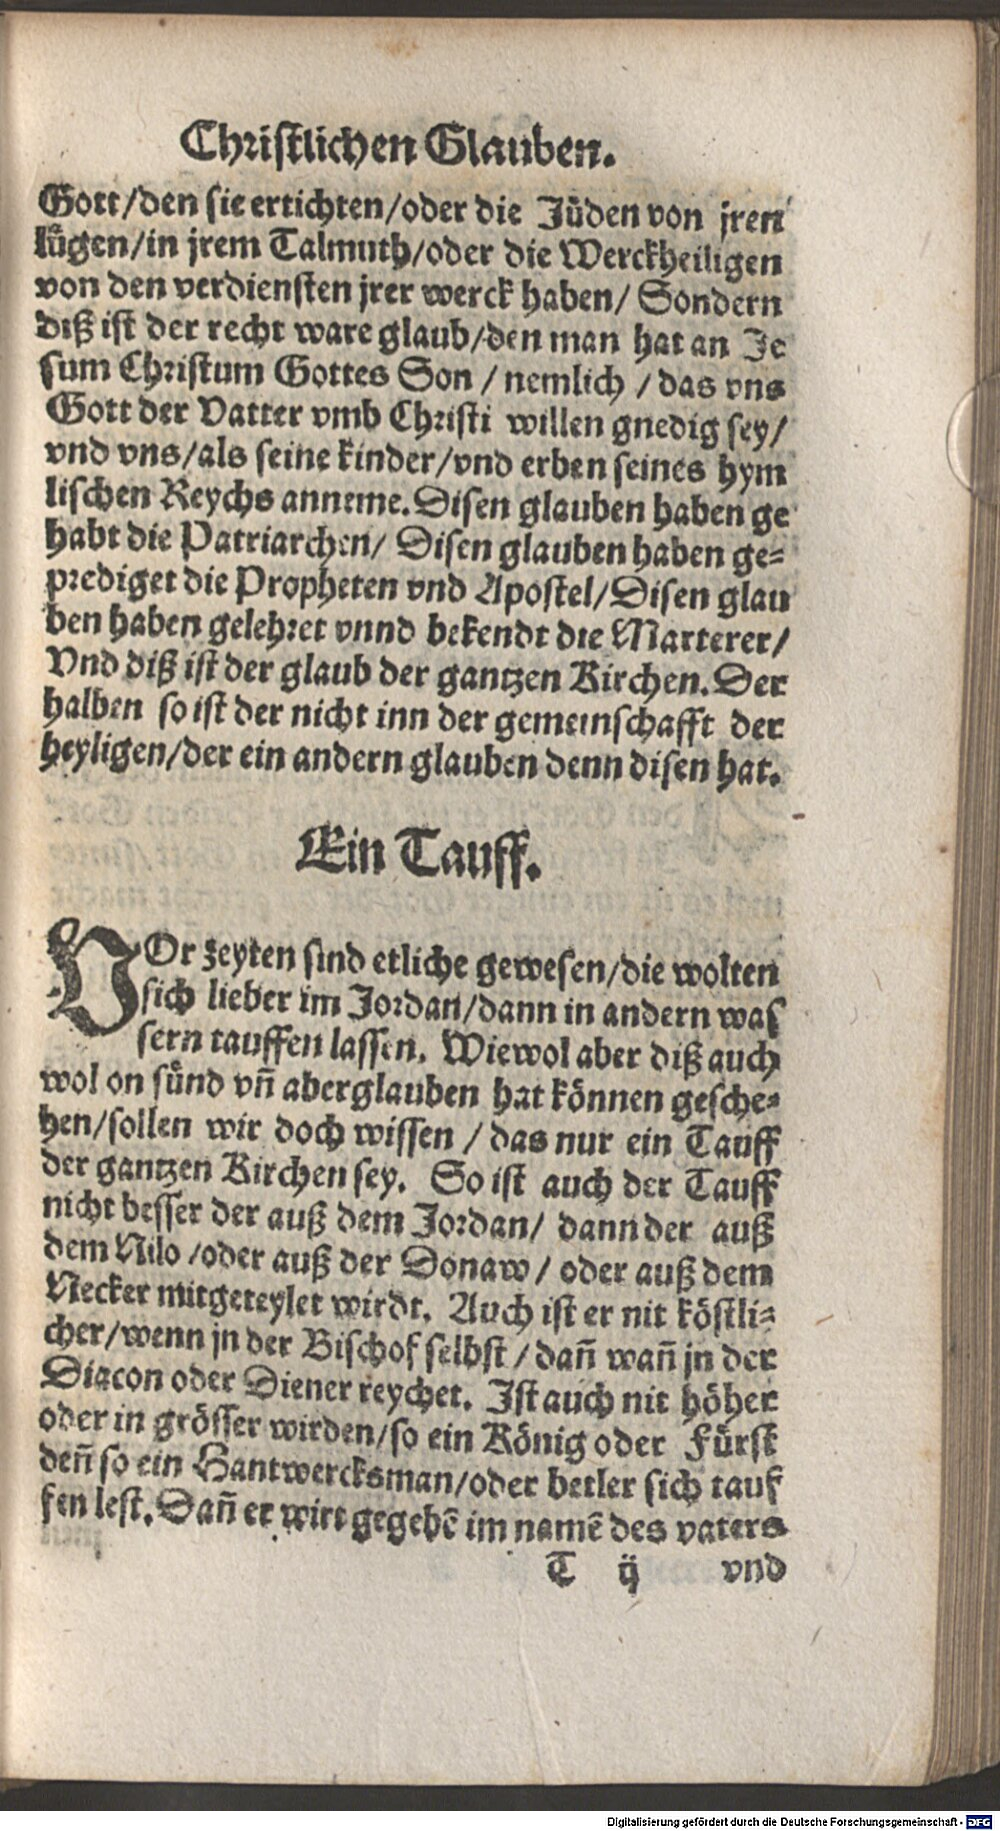 Christlichen Glauben.
Gott/den sie ertichten/oder die Jüden von jren
lügen/in jrem Talmuth/oder die Werckheiligen
von den verdiensten jrer werck haben/ Sondern
diß ist der recht ware glaub/den man hat an Je
sum Christum Gottes Son / nemlich / das vns
Gott der Vatter vmb Christi willen gnedig sey/
vnd vns/als seine kinder/vnd erben seines hym
lischen Reychs anneme. Disen glauben haben ge
habt die Patriarchen/ Disen glauben haben ge-
prediget die Propheten vnd Apostel/Disen glau
ben haben gelehret vnnd bekendt die Marterer/
Vnd diß ist der glaub der gantzen Kirchen. Der
halben so ist der nicht inn der gemeinschafft der
heyligen/der ein andern glauben denn disen hat.
Ein Tauff.
VOr zeyten sind etliche gewesen/die wolten
sich lieber im Jordan/dann in andern was
sern tauffen lassen. Wiewol aber diß auch
wol on sünd vñ aberglauben hat können gesche-
hen/sollen wir doch wissen / das nur ein Tauff
der gantzen Kirchen sey. So ist auch der Tauff
nicht besser der auß dem Jordan/ dann der auß
dem Nilo /oder auß der Donaw / oder auß dem
Necker mitgeteylet wirdt. Auch ist er nit köstli-
cher/wenn jn der Bischof selbst / dañ wañ jn der
Diacon oder Diener reychet. Ist auch nit höher
oder in grösser wirden/so ein König oder Fürst
deñ so ein Hantwercksman/oder betler sich tauf
fen lest. Dañ er wirt gegebẽ im namẽ des vaters
T ij vnd
Digitalisierung gefördert durch die Deutsche Forschungsgemeinschaft - DFG